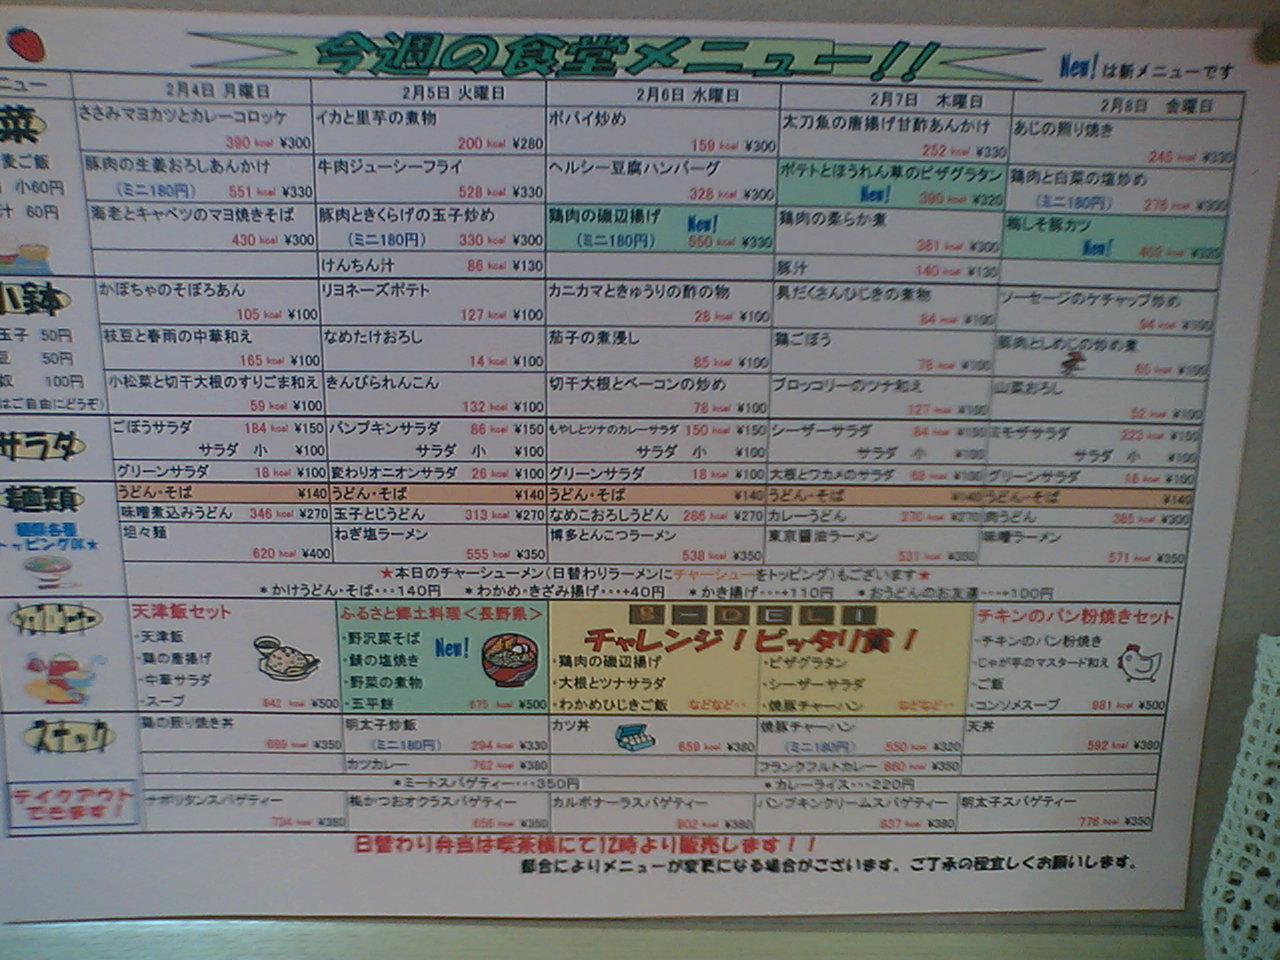 今週の食堂メニュー!!
New! は新メニューです
ニュー 2月4日 月曜日 2月5日 火曜日 2月6日 水曜日 2月7日 木曜日 2月8日 金曜日
菜
麦ご飯
小60円
汁 60円
ささみマヨカツとカレーコロッケ イカと里芋の煮物 ポパイ炒め 太刀魚の唐揚げ甘酢あんかけ あじの照り焼き
390 kcal ¥300 200 kcal ¥280 159 kcal ¥300 252 kcal ¥330 245 kcal ¥330
豚肉の生姜おろしあんかけ 牛肉ジューシーフライ ヘルシー豆腐ハンバーグ ポテトとほうれん草のピザグラタン 鶏肉と白菜の塩炒め
(ミニ180円) 551 kcal ¥330 528 kcal ¥330 328 kcal ¥300 New! 390 kcal ¥320 (ミニ180円) 276 kcal ¥300
海老とキャベツのマヨ焼きそば 豚肉ときくらげの玉子炒め 鶏肉の磯辺揚げ New! 鶏肉の柔らか煮 梅しそ豚カツ
430 kcal ¥300 (ミニ180円) 330 kcal ¥300 (ミニ180円) 550 kcal ¥330 381 kcal ¥300 New! kcal ¥320
けんちん汁 86 kcal ¥130 豚汁 140 kcal ¥130
小鉢
玉子 50円
豆 50円
奴 100円
はご自由にどうぞ)
かぼちゃのそぼろあん リヨネーズポテト カニカマときゅうりの酢の物 具だくさんひじきの煮物 ソーセージのケチャップ炒め
105 kcal ¥100 127 kcal ¥100 28 kcal ¥100 84 kcal ¥100 94 kcal ¥100
枝豆と春雨の中華和え なめたけおろし 茄子の煮浸し 鶏ごぼう 豚肉としめじの炒め煮
165 kcal ¥100 14 kcal ¥100 85 kcal ¥100 78 kcal ¥100 kcal ¥100
小松菜と切干大根のすりごま和え きんぴられんこん 切干大根とベーコンの炒め ブロッコリーのツナ和え 山菜おろし
59 kcal ¥100 132 kcal ¥100 78 kcal ¥100 127 kcal ¥100 52 kcal ¥100
サラダ
ごぼうサラダ 184 kcal ¥150 パンプキンサラダ 86 kcal ¥150 もやしとツナのカレーサラダ 150 kcal ¥150 シーザーサラダ 84 kcal ¥150 ミモザサラダ 223 kcal ¥150
サラダ 小 ¥100 サラダ 小 ¥100 サラダ 小 ¥100 サラダ 小 ¥100 サラダ 小 ¥100
グリーンサラダ 18 kcal ¥100 変わりオニオンサラダ 26 kcal ¥100 グリーンサラダ 18 kcal ¥100 大根とワカメのサラダ kcal ¥100 グリーンサラダ 18 kcal ¥100
麺類
麺類各種
トッピングOK★
うどん・そば ¥140 うどん・そば ¥140 うどん・そば ¥140 うどん・そば ¥140 うどん・そば ¥140
味噌煮込みうどん 346 kcal ¥270 玉子とじうどん 313 kcal ¥270 なめこおろしうどん 286 kcal ¥270 カレーうどん 370 kcal ¥270 肉うどん 385 kcal ¥300
坦々麺 ねぎ塩ラーメン 博多とんこつラーメン 東京醤油ラーメン 味噌ラーメン
620 kcal ¥400 555 kcal ¥350 538 kcal ¥350 531 kcal ¥350 571 kcal ¥350
★本日のチャーシューメン(日替わりラーメンにチャーシューをトッピング)もございます★
*かけうどん・そば・・・140円 *わかめ・きざみ揚げ・・・+40円 *かき揚げ・・・+110円 *おうどんのお友達・・・+100円
天津飯セット ふるさと郷土料理<長野県> B-DELI チキンのパン粉焼きセット
チャレンジ!ピッタリ賞!
・天津飯 ・野沢菜そば New! ・鶏肉の磯辺揚げ ・ピザグラタン ・チキンのパン粉焼き
・鶏の唐揚げ ・鯖の塩焼き ・大根とツナサラダ ・シーザーサラダ ・じゃが芋のマスタード和え
・中華サラダ ・野菜の煮物 ・わかめひじきご飯 などなど・・ ・焼豚チャーハン などなど・・ ・ご飯
・スープ 842 kcal ¥500 ・五平餅 675 kcal ¥500 ・コンソメスープ 981 kcal ¥500
スナック
鶏の照り焼き丼 明太子炒飯 カツ丼 焼豚チャーハン 天丼
689 kcal ¥350 (ミニ180円) 294 kcal ¥330 659 kcal ¥380 (ミニ180円) 550 kcal ¥320 592 kcal ¥380
カツカレー 762 kcal ¥380 フランクフルトカレー 860 kcal ¥350
*ミートスパゲティー・・・350円 *カレーライス・・・220円
テイクアウト
できます!
ナポリタンスパゲティー 梅かつおオクラスパゲティー カルボナーラスパゲティー パンプキンクリームスパゲティー 明太子スパゲティー
734 kcal ¥380 656 kcal ¥350 802 kcal ¥380 837 kcal ¥380 778 kcal ¥350
日替わり弁当は喫茶横にて12時より販売します!!
都合によりメニューが変更になる場合がございます。ご了承の程宜しくお願いします。